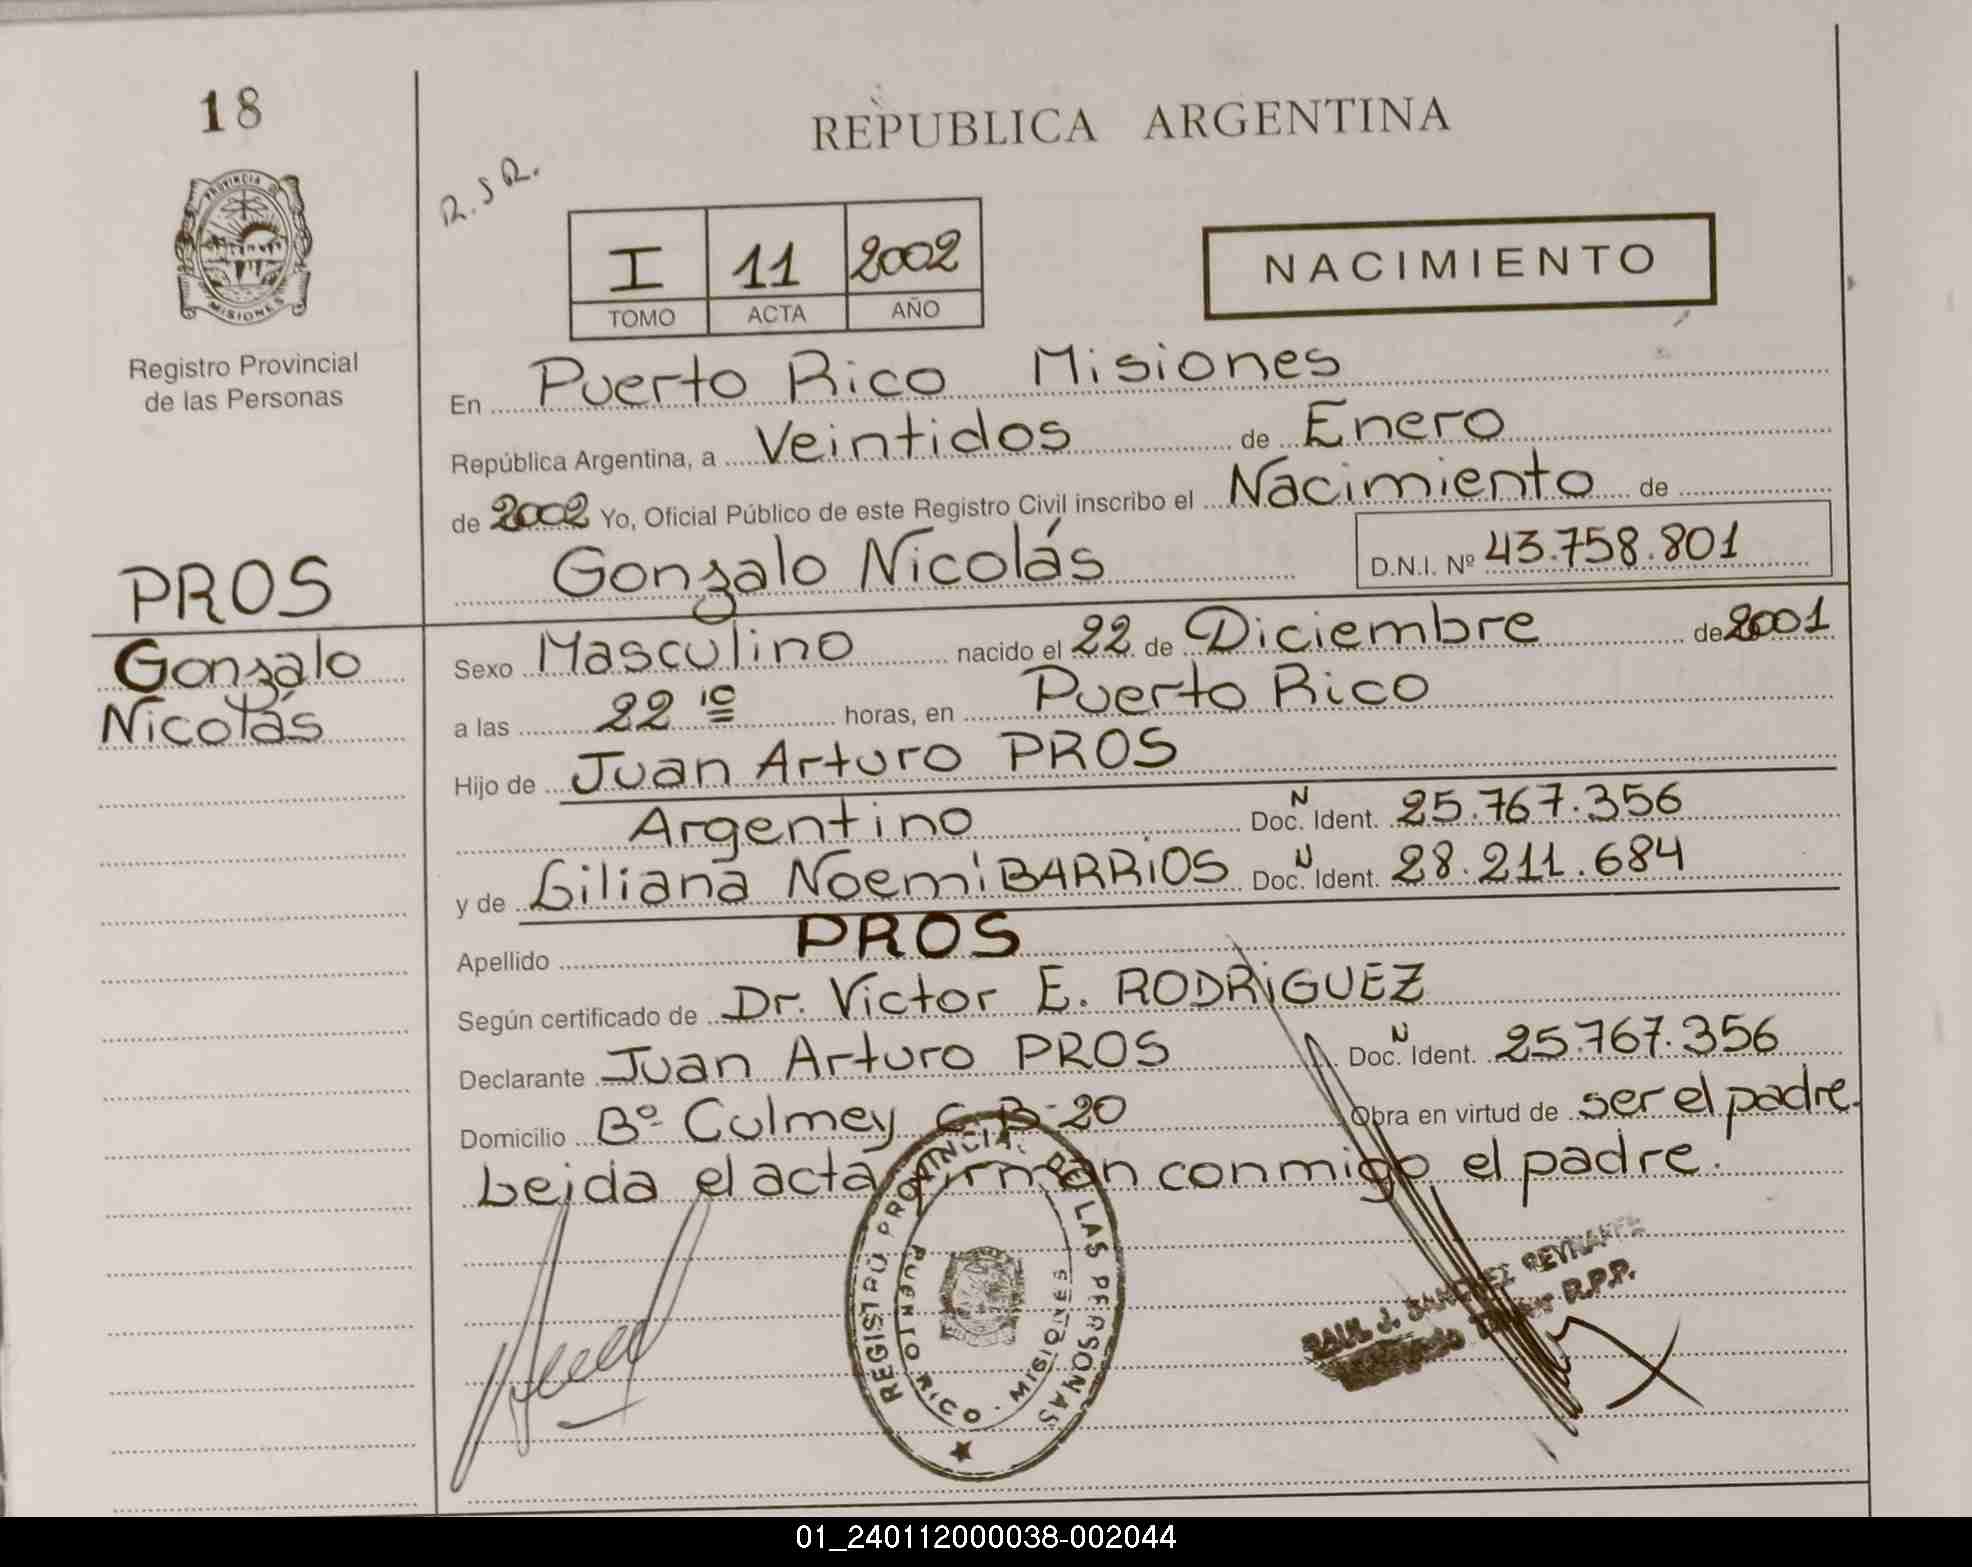 18
REPUBLICA ARGENTINA
R.S.R.
PROVINCIA DE
MISIONES
I 11 2002
TOMO ACTA AÑO
NACIMIENTO
Registro Provincial
de las Personas
En Puerto Rico Misiones
República Argentina, a Veintidos de Enero
de 2002 Yo, Oficial Público de este Registro Civil inscribo el Nacimiento de
Gonzalo Nicolás D.N.I. Nº 43.758.801
PROS
Gonzalo
Nicolás
Sexo Masculino nacido el 22 de Diciembre de 2001
a las 22 10 horas, en Puerto Rico
Hijo de Juan Arturo PROS
Argentino Doc. N Ident. 25.767.356
y de Liliana Noemi BARRIOS Doc. N Ident. 28.211.684
Apellido PROS
Según certificado de Dr. Victor E. RODRIGUEZ
Declarante Juan Arturo PROS Doc. N Ident. 25.767.356
Domicilio Bº Culmey C B-20 Obra en virtud de ser el padre.
Leida el acta firman conmigo el padre.
REGISTRO PROVINCIAL DE LAS PERSONAS
PUERTO RICO - MISIONES
RAUL J. SANCHEZ REYNAFE
R.P.P.
01_240112000038-002044